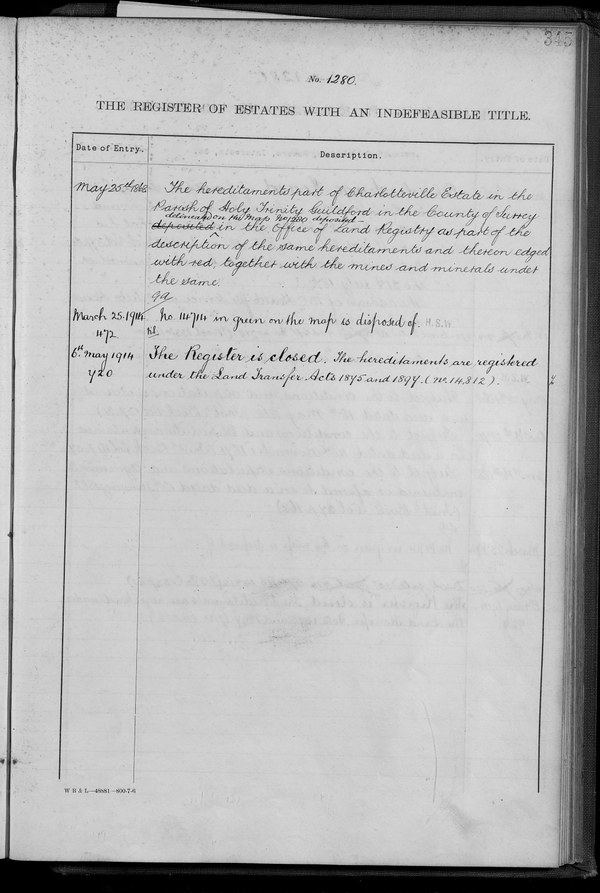 345
No. 1280.
THE REGISTER OF ESTATES WITH AN INDEFEASIBLE TITLE.
Date of Entry.
Description.
May 25th
The hereditaments part of Charlotteville Estate in the
Parish of Holy Trinity Guildford in the County of Surrey
delineated on the Map No 1280 deposited
deposited in the Office of Land Registry as part of the
description of the same hereditaments and thereon edged
with red, together with the mines and minerals under
the same.
March 25. 1914.
No. 114714 in green on the map is disposed of. H.S.H.
472
6th May 1914
The Register is closed. The hereditaments are registered
720
under the Land Transfer Acts 1875 and 1897. (No. 14,812).
W B & L—48891—800-7-6